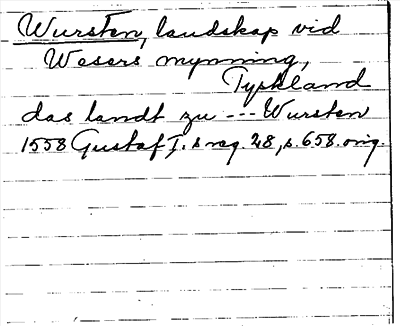 Wursten, landskap vid
Wesers mynning,
Tyskland
das landt zu --- Wursten
1558 Gustaf I. s reg. 28, s. 658. orig.